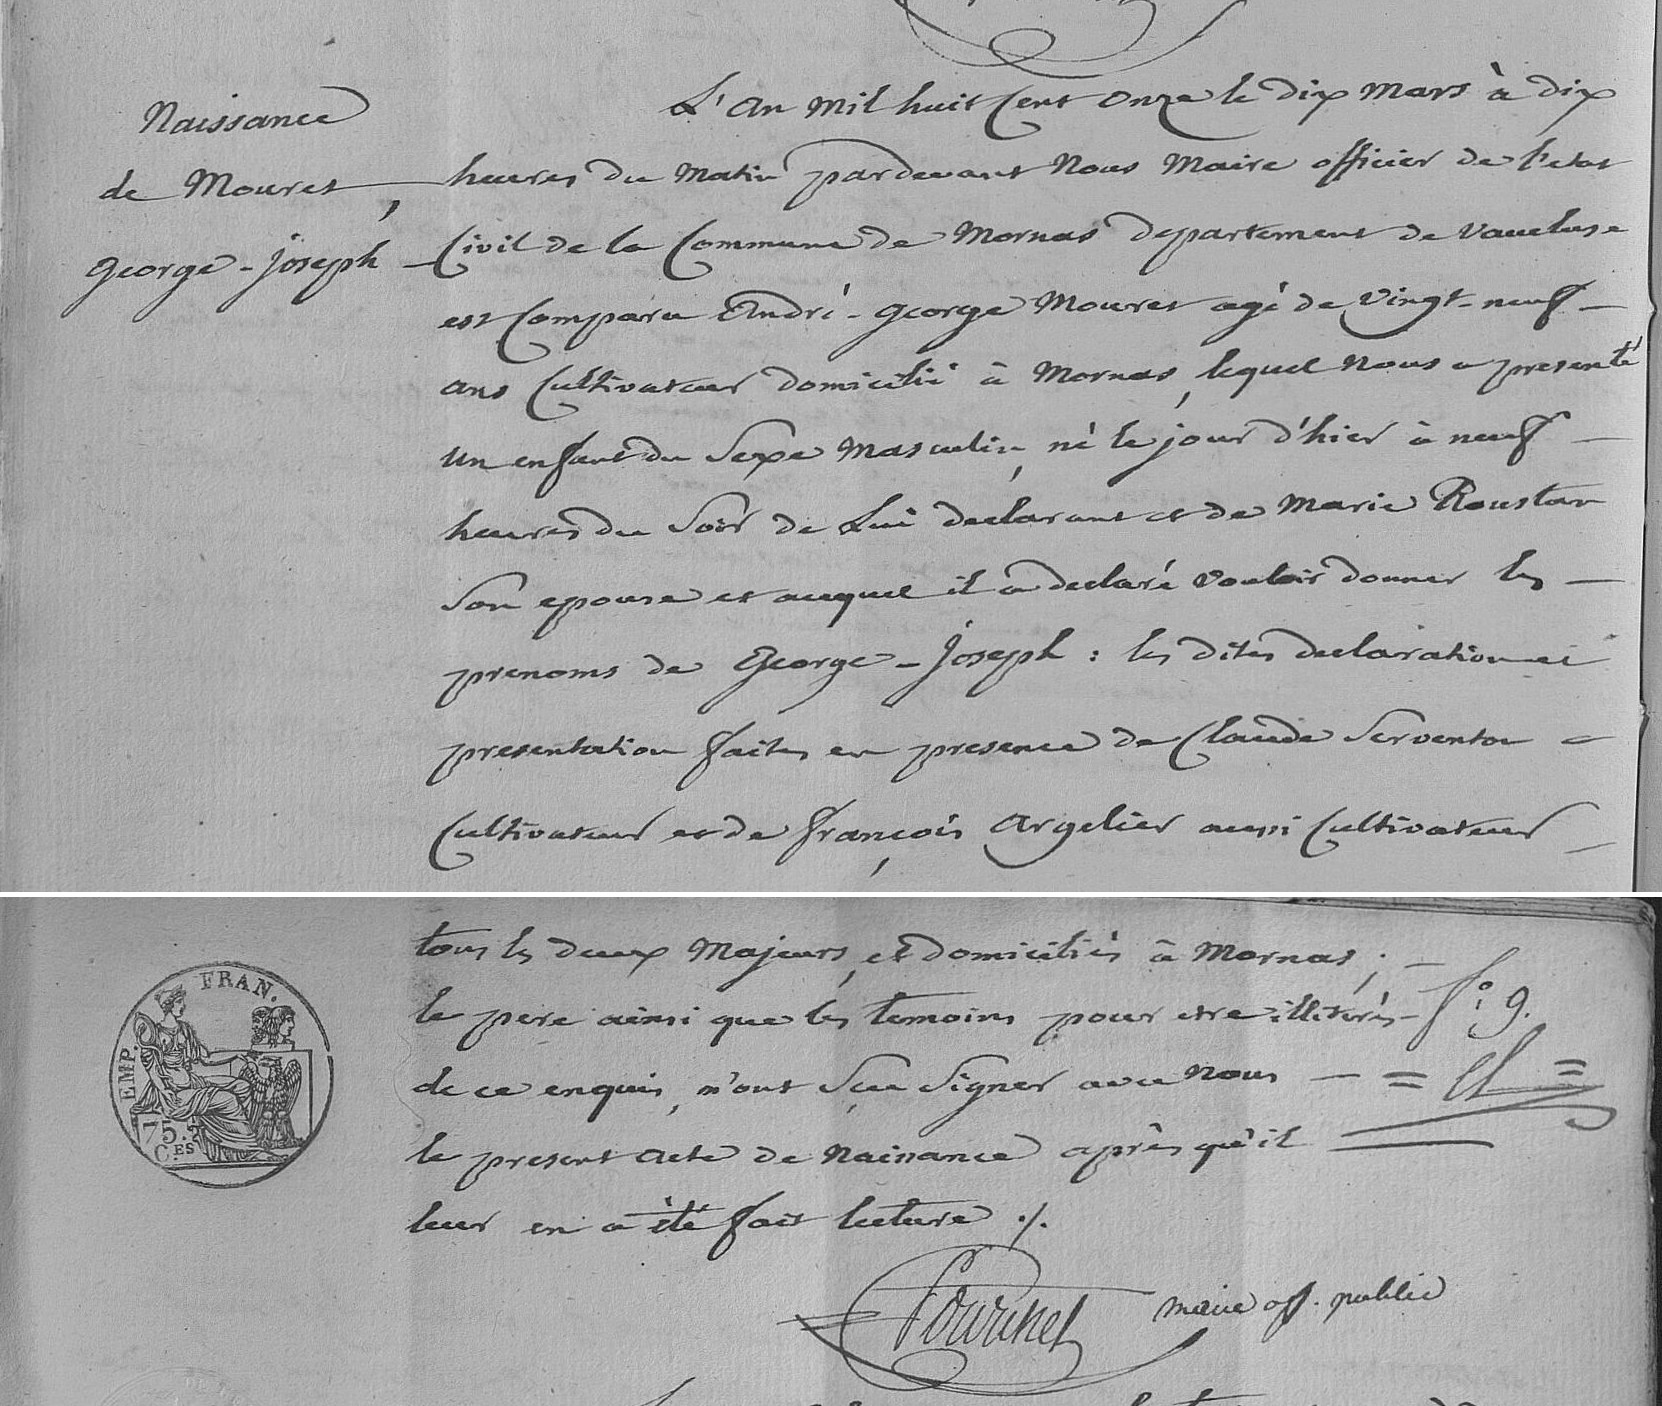 Naissance
de Mouret,
george-joseph
L'an mil huit Cent onze le dix mars à dix
heures du matin pardevant Nous Maire officier de l'etat
Civil de la Commune de Mornas departement de vaucluse
est Comparu André-george Mouret agé de vingt-neuf
ans Cultivateur domicilié à Mornas, lequel nous a presenté
un enfant du Sexe masculin, né le jour d'hier à neuf
heures du Soir de Lui declarant et de Marie Roustan
Son epouse et auquel il a declaré vouloir donner les
prenoms de George-joseph : les dites declaration et
presentation faites en presence de Claude Serventon
Cultivateur et de françois argelier aussi Cultivateur
tous les deux Majeurs, et domiciliés à Mornas;
le pere ainsi que les temoins pour etre illiterés
de ce enquis, n'ont Sçu Signer avec nous
le present acte de naissance après qu'il
leur en a été fait lecture ./.
fo: 9.
FRAN.
EMP.
75.
C.ES
maire off. public